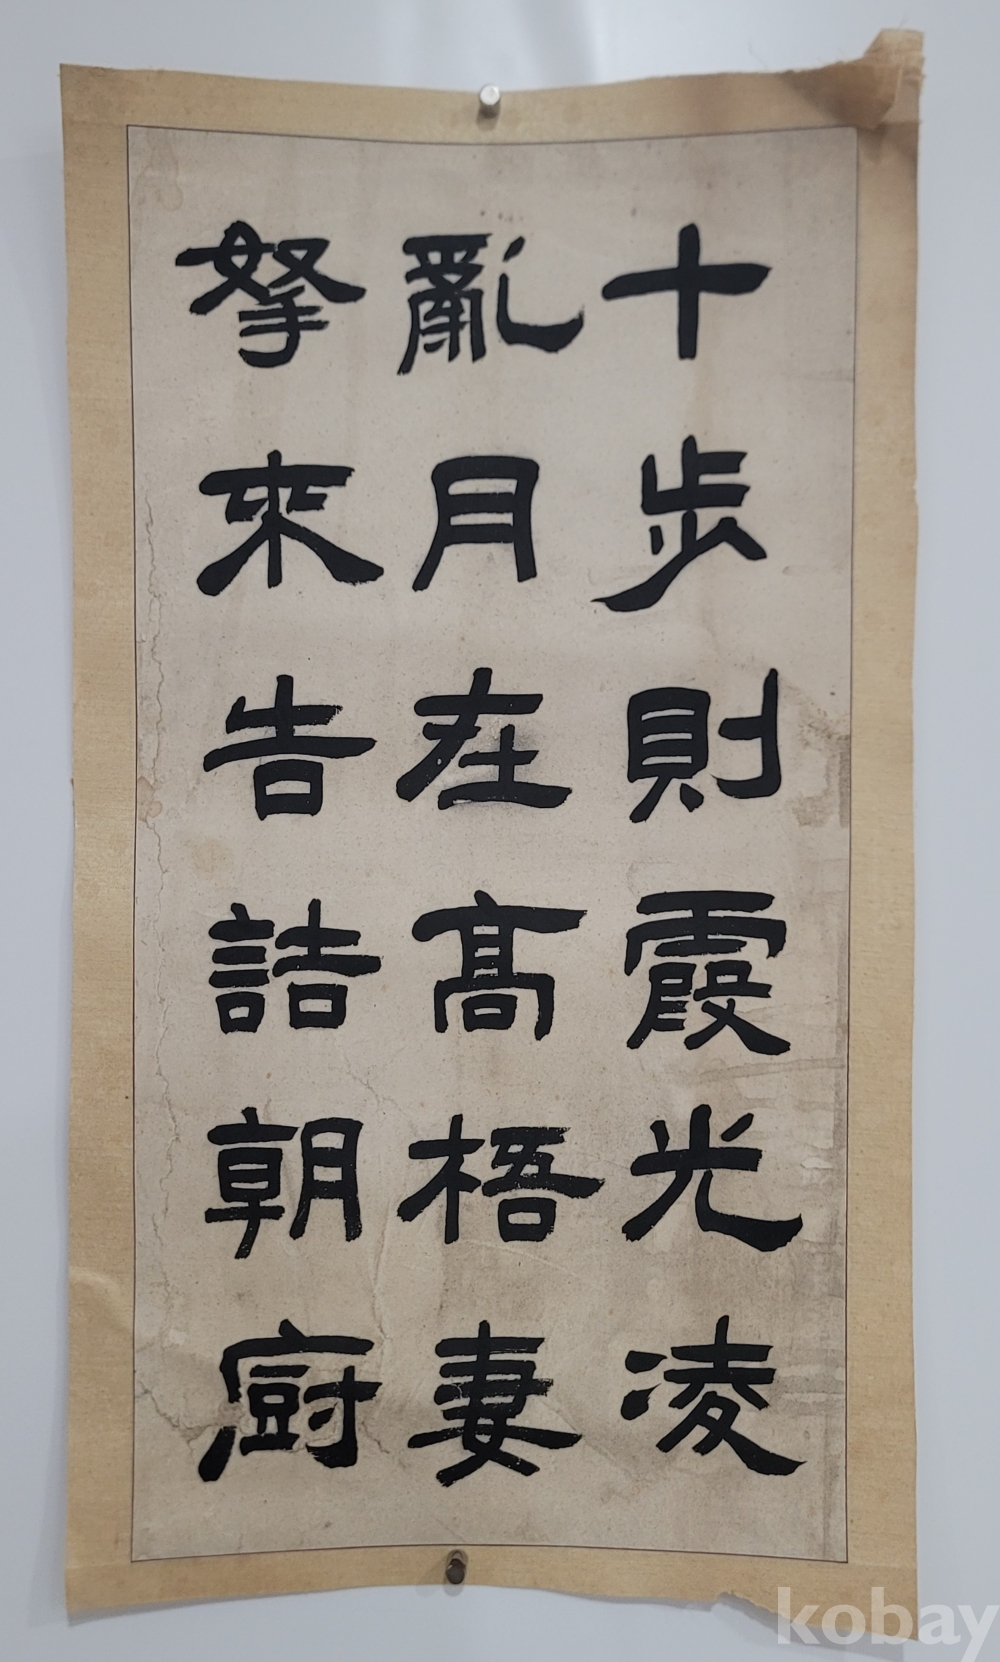 十步則霞光凌
亂月在高梧妻
拏來告詰朝廚
kobay